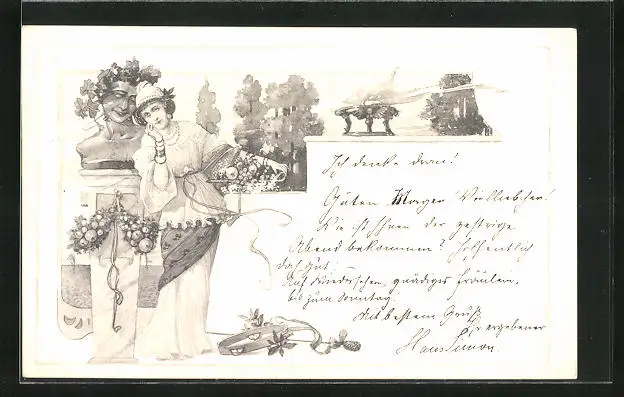 Ich denke dran!
Guten Morgen
Wie ist Ihnen der gestrige
Abend bekommen? Hoffentlich
doch gut. —
Auf Wiedersehen, gnädiges Fräulein,
bis zum Sonntag.
Mit bestem Gruß
Ihr ergebener
Hans Simon.